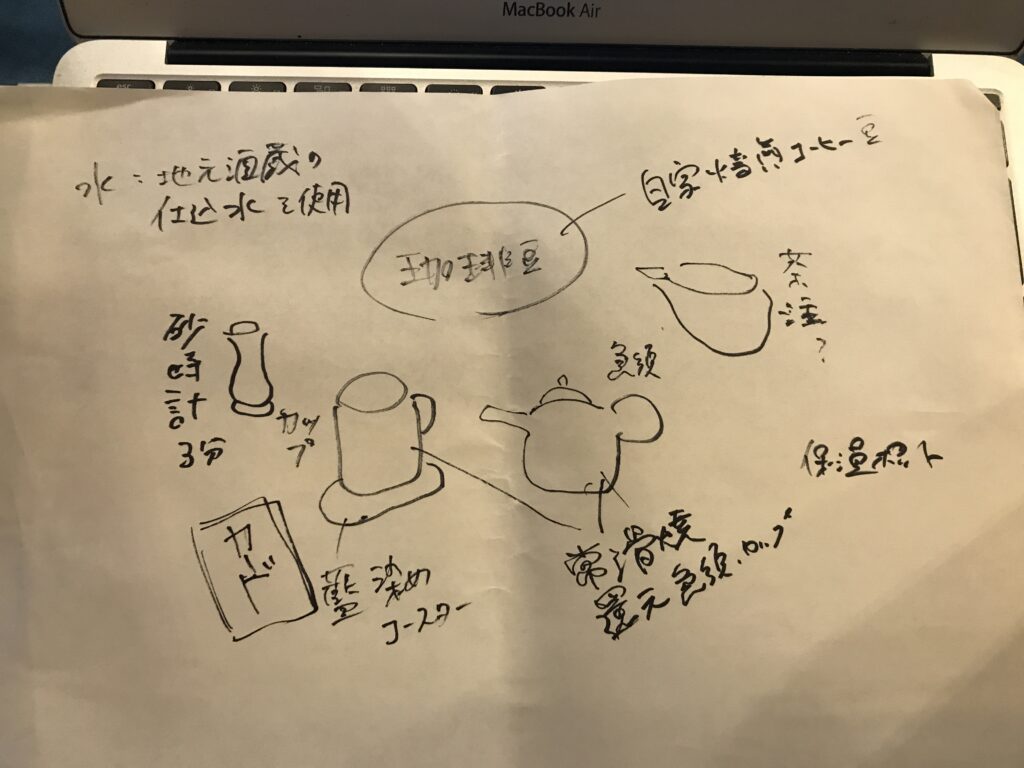 MacBook Air
水:地元酒蔵の
仕込水を使用
自家焙煎コーヒー豆
珈琲豆
茶注?
砂時計
3分
カップ
急須
保温ポット
カード
藍染め
コースター
常滑焼
還元急須、カップ